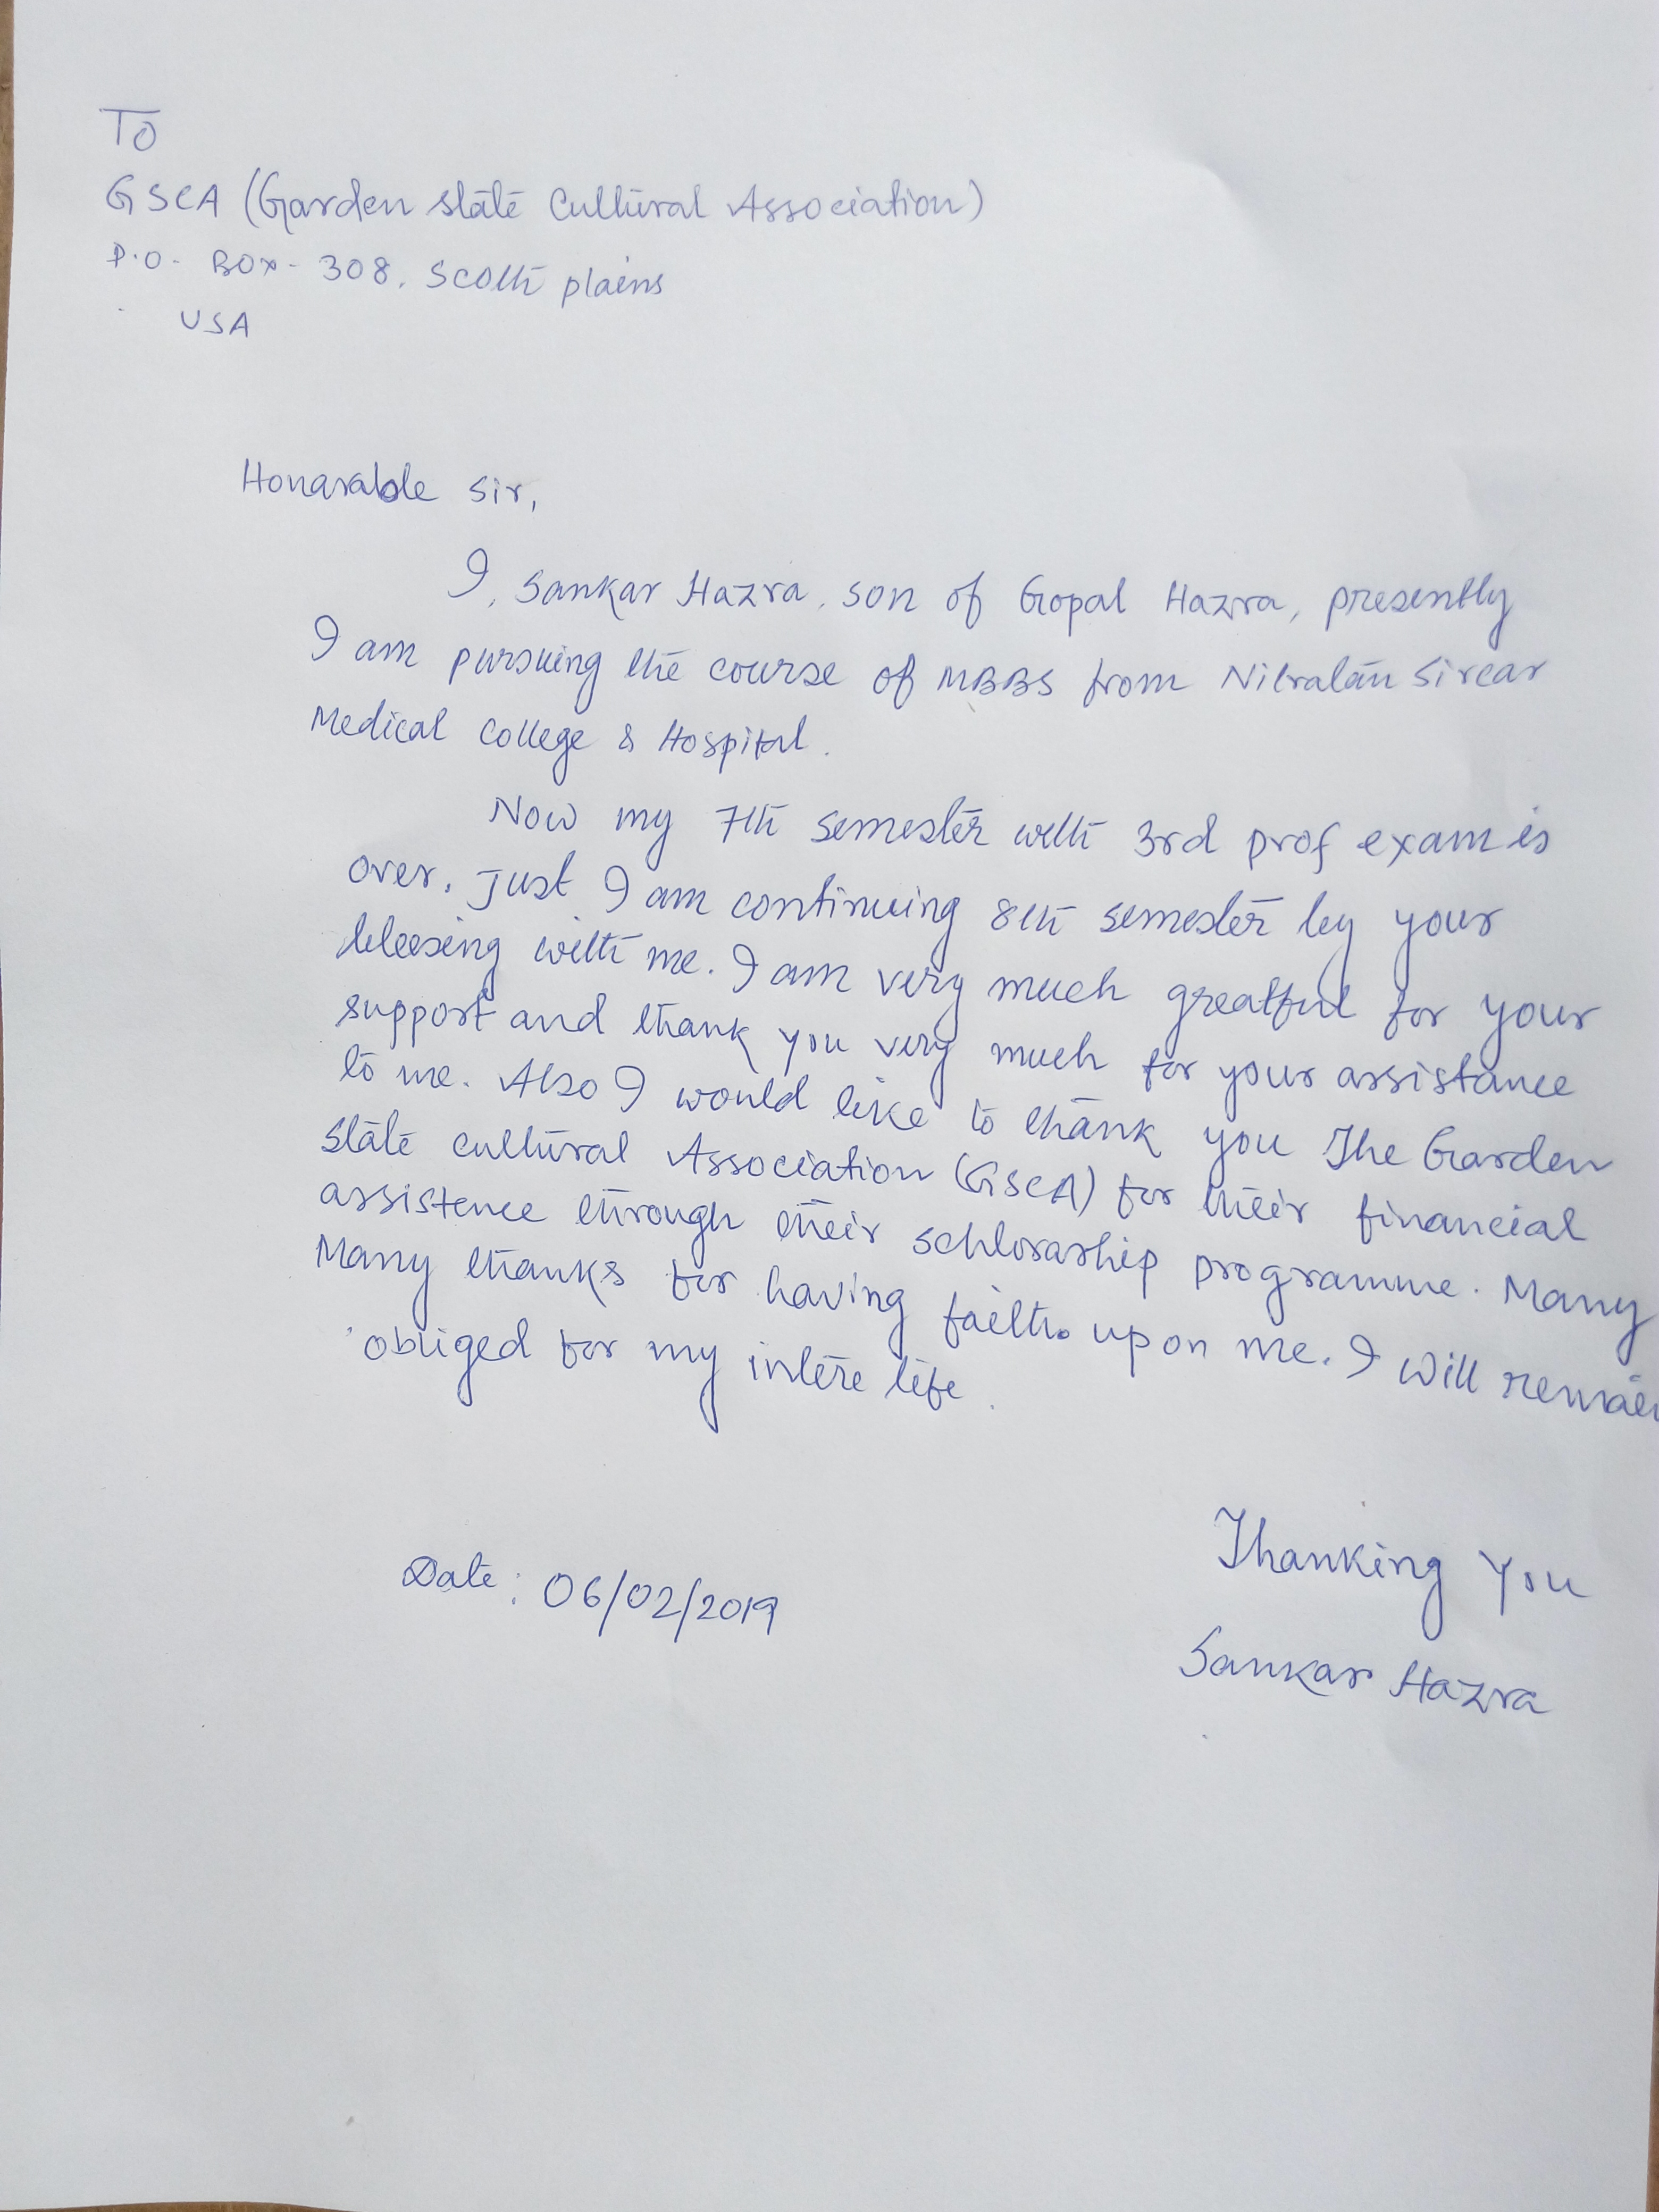 To
GSCA (Garden State Cultural Association)
P.O. BOX - 308, Scoth plains
USA
Honarable Sir,
I, Sankar Hazra, son of Gopal Hazra, presently
I am pursuing the course of MBBS from Nilratan Sircar
Medical College & Hospital.
Now my 7th semester with 3rd prof exam is
over. Just I am continuing 8th semester by your
blessing with me. I am very much greatful for your
support and thank you very much for your assistance
to me. Also I would like to thank you The Garden
State Cultural Association (GSCA) for their financial
assistence through their schlorarship programme. Many
Many thanks for having faith upon me. I will remain
obliged for my intere life.
Thanking You
Date: 06/02/2019
Sankar Hazra